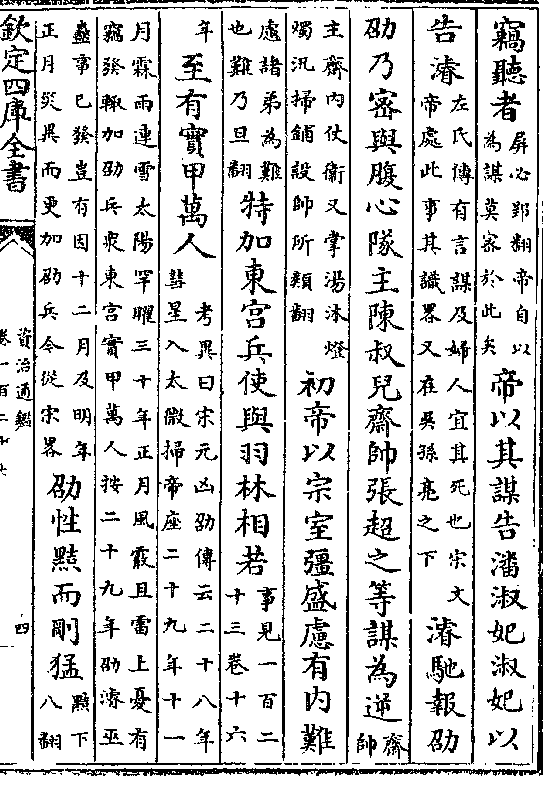 竊聽者屏必郢翻帝自以為謀莫密於此矣帝以其謀告潘淑妃淑妃以
告濬左氏傳有言謀及婦人宜其死也宋文帝處此事其識畧又在吳孫亮之下濬馳報劭
劭乃密與腹心隊主陳叔兒齋帥張超之等謀為逆齋帥
主齋内仗衛又掌湯沐燈燭汛掃鋪設帥所類翻初帝以宗室彊盛慮有内難
慮諸弟為難也難乃旦翻特加東宫兵使與羽林相若事見一百二十三卷十六
年至有實甲萬人考異曰宋元凶劭傳云二十八年彗星入太微掃帝座二十九年十一
月霖雨連雪太陽罕曜三十年正月風霰且雷上憂有竊發輙加劭兵衆東宫實甲萬人按二十九年劭濬巫
蠱事已發豈有因十二月及明年正月災異而更加劭兵今從宋畧劭性黠而剛猛黠下八翻
欽定四庫全書
資治通鑑
四